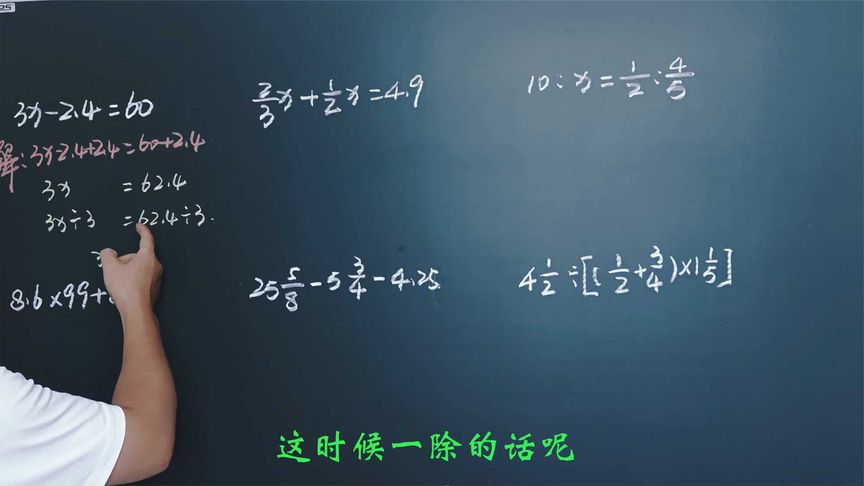 3x-2.4=60
解:3x-2.4+2.4=60+2.4
3x =62.4
3x÷3 =62.4÷3.
8.6×99+
2/3x+1/2x=4.9
10:x=1/2:4/5
25 5/8-5 3/4-4.25
4 1/2÷[(1/2+3/4)×1 1/5]
这时候一除的话呢